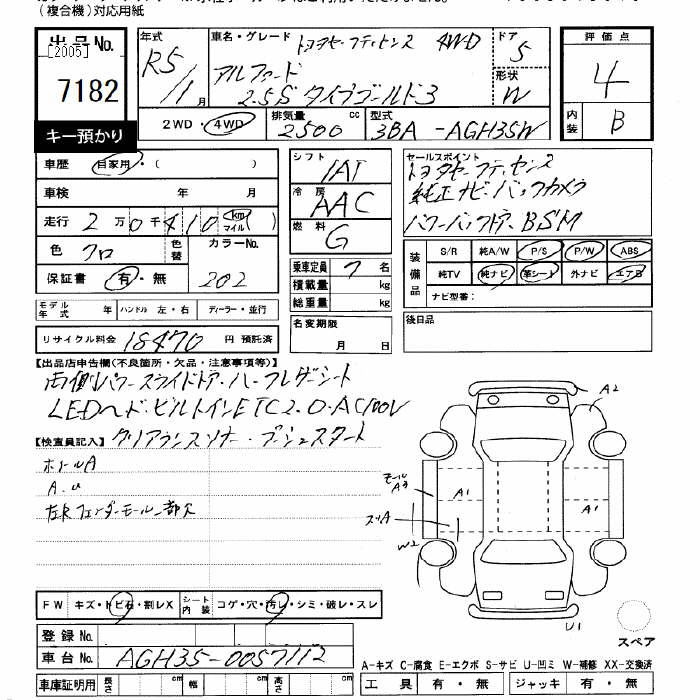 (複合機)対応用紙
出品No.
[2005]
7182
キー預かり
年式 R5/1月
車名・グレード トヨタセーフティセンス 4WD
アルファード
2.5S タイプゴールド3
ドア 5
形状 W
評価点 4
内装 B
2WD・4WD
排気量 2500 cc
型式 3BA-AGH35W
車歴 自家用・( )
車検 年 月
走行 2万0千410 (km マイル)
色 クロ 色替
カラーNo. 202
保証書 有・無
シフト IAT
冷房 AAC
燃料 G
乗車定員 7 名
積載量 kg
総重量 kg
セールスポイント
トヨタセーフティセンス
純正ナビ・バックカメラ
パワーバックドア・BSM
装備品
S/R 純A/W P/S P/W ABS
純TV 純ナビ 革シート 外ナビ エアB
ナビ型番:
モデル年式 年 ハンドル 左・右 ディーラー・並行
リサイクル料金 18470 円 預託済
名変期限
月 日
後日品
【出品店申告欄(不良箇所・欠品・注意事項等)】
両側パワースライドドア・ハーフレザーシート
LEDヘッド・ビルトインETC2.0・AC100V
【検査員記入】 クリアランスソナー・プッシュスタート
ホイールA
A.U
左Rフェンダーモール一部欠
A2
モール
A3
A1
A1
スリA
W2
U1
FW キズ・トビ石・割レX シート内装 コゲ・穴・汚レ・シミ・破レ・スレ
スペア
登録No.
車台No. AGH35-0057112
A-キズ C-腐食 E-エクボ S-サビ U-凹ミ W-補修 XX-交換済
車庫証明用 長さ cm 幅 cm 高さ cm
工具 有・無 ジャッキ 有・無